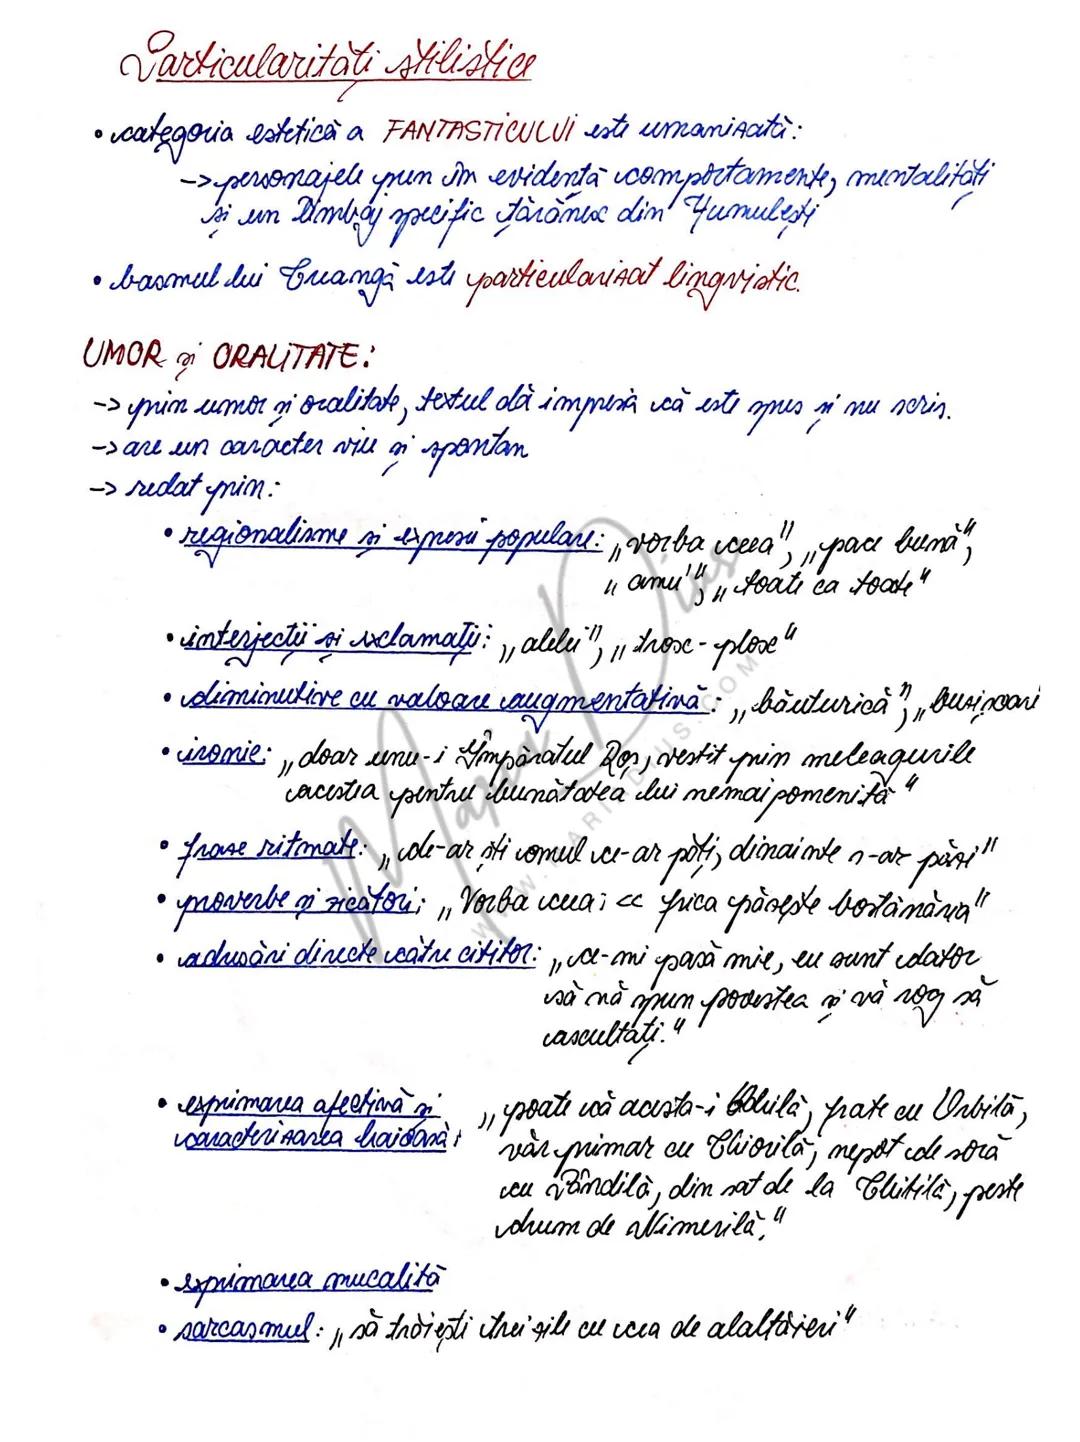 Particularități stilistice
• categoria estetică a FANTASTICULUI este umanizată:
-> personajele pun în evidență comportamente, mentalități
și un limbaj specific țărănesc din Humulești
• basmul lui Creangă este particularizat lingvistic.
UMOR și ORALITATE:
-> prin umor și oralitate, textul dă impresia că este spus și nu scris.
-> are un caracter viu și spontan
-> redat prin:
• regionalisme și expresii populare: „vorba ceea", „pace bună",
„amu'", „toate ca toate"
• interjecții și exclamații: „alelei", „trosc-plosc"
• diminutive cu valoare augmentativă: „băuturică", „buzișoare
• ironie: „doar unu-i Împăratul Roș, vestit prin meleagurile
acestea pentru bunătatea lui nemaipomenită"
• fraze ritmate: „de-ar ști omul ce-ar păți, dinainte s-ar păzi"
• proverbe și zicători: „Vorba ceea: << frica păzește bostănăria"
• adresări directe către cititor: „ce-mi pasă mie, eu sunt dator
să vă spun povestea și vă rog să
ascultați."
• exprimarea afectivă și
caracterizarea haioasă:
„poate că acesta-i Ochilă, frate cu Orbilă,
văr primar cu Chiorilă, nepot de soră
cu Pândilă, din sat de la Chitilă, peste
drum de Nimerilă."
• exprimarea mucalită
• sarcasmul: „să trăiești trei zile cu cea de alaltăieri"
Maria Dius
WWW.MARIADIUS.COM